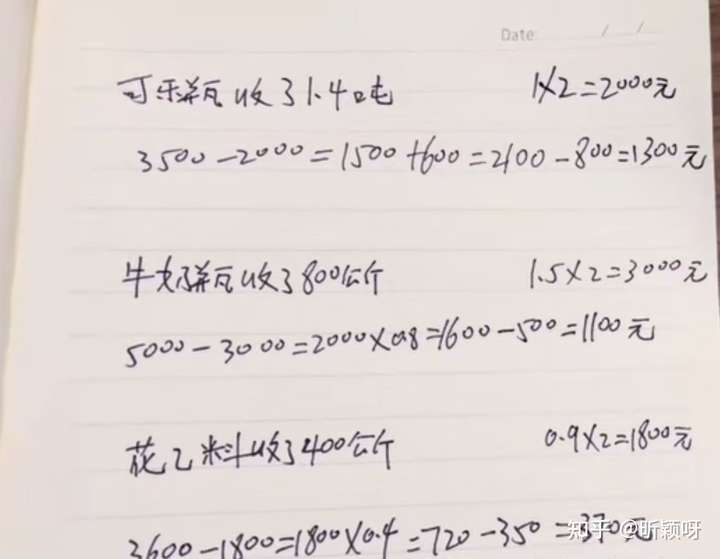 Date: / /
可乐瓶收了1.4吨 1×2=2000元
3500-2000=1500+600=2100-800=1300元
牛奶瓶收了800公斤 1.5×2=3000元
5000-3000=2000×0.8=1600-500=1100元
花乙料收了400公斤 0.9×2=1800元
3600-1800=1800×0.4=720-350=370元
知乎 @昕颖呀